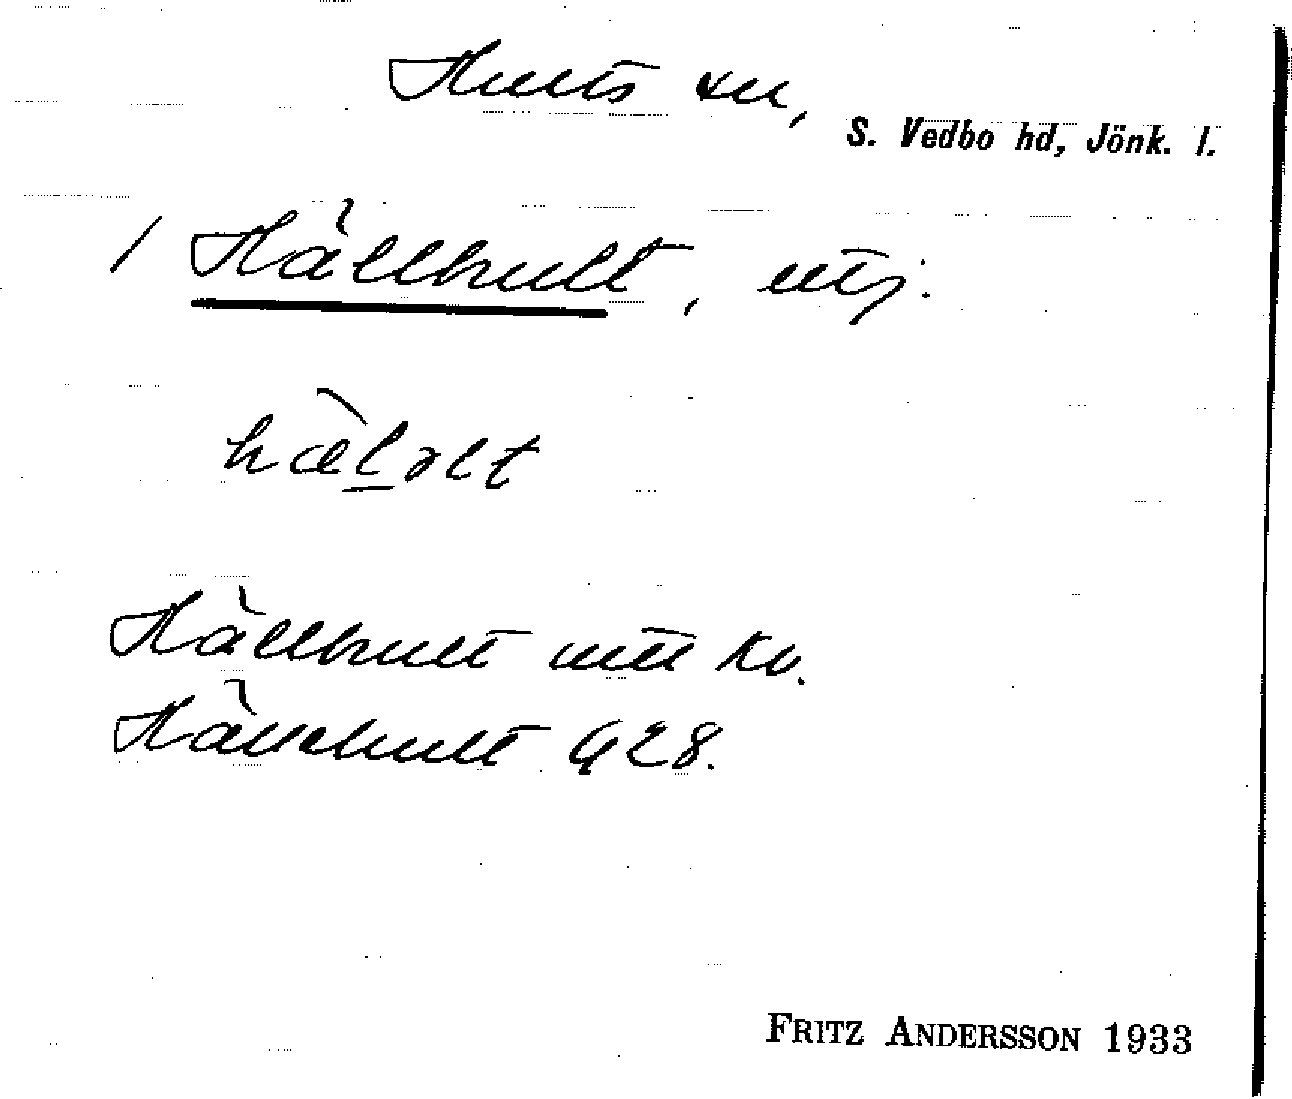 Hults sn,
S. Vedbo hd, Jönk. l.
/ Hällhult, utj.
hæ̀ləlt
Hällhult utj kv.
Hällehult G28.
FRITZ ANDERSSON 1933